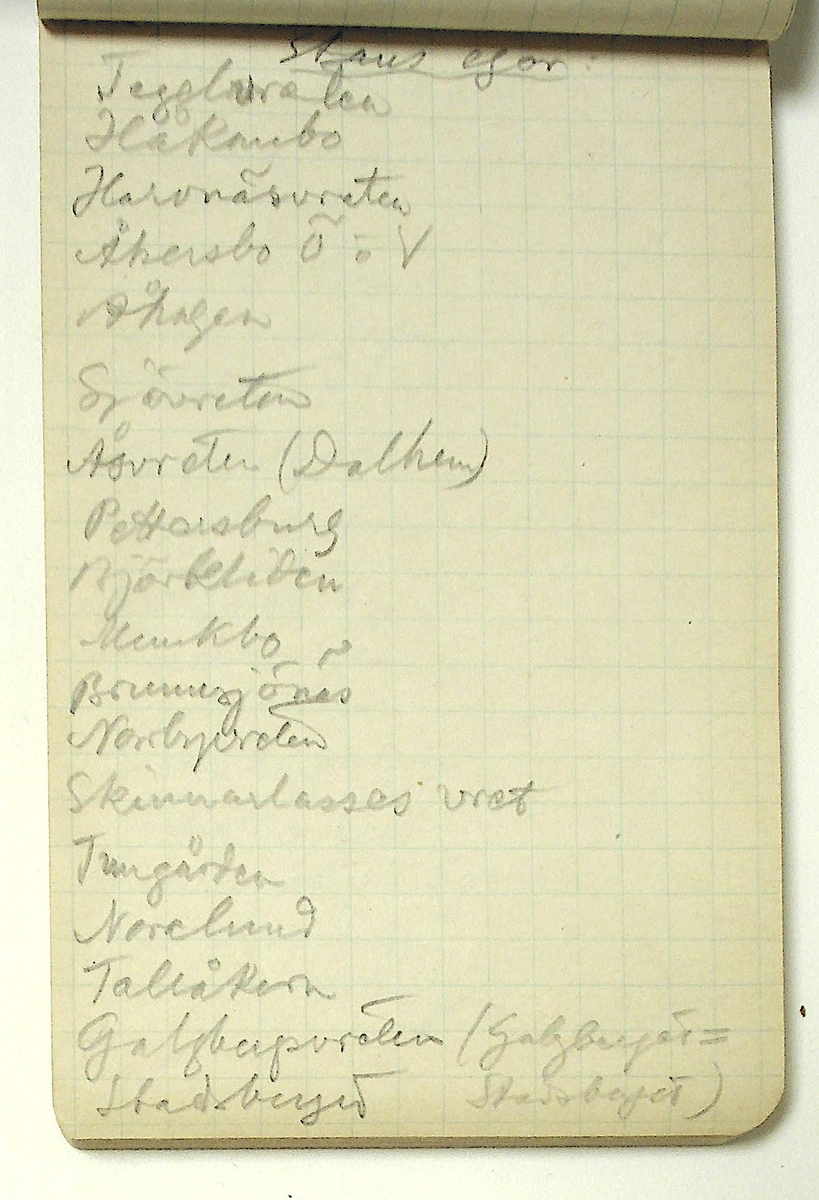 Stans egor:
Teggelvreten
Håkanbo
Harvnäsvreten
Åkersbo Ö o V
Åhagen
Sjövreten
Åsvreten (Dalhem)
Pettersburg
Björkliden
Munkbo
Brunnsjönäs
Norrbyvreten
Skinnarlasses vret
Tungården
Norelund
Tallåkern
Galgbergsvreten (Galgberget =
Stadsberget Stadsberget)